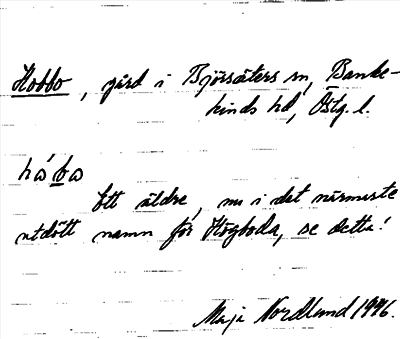 Hobbo, gård i Björsäters sn, Banke-
kinds hd, Östg. l.
håba
Ett äldre, nu i det närmaste
utdött namn för Högboda, se detta!
Maja Nordlund 1946.